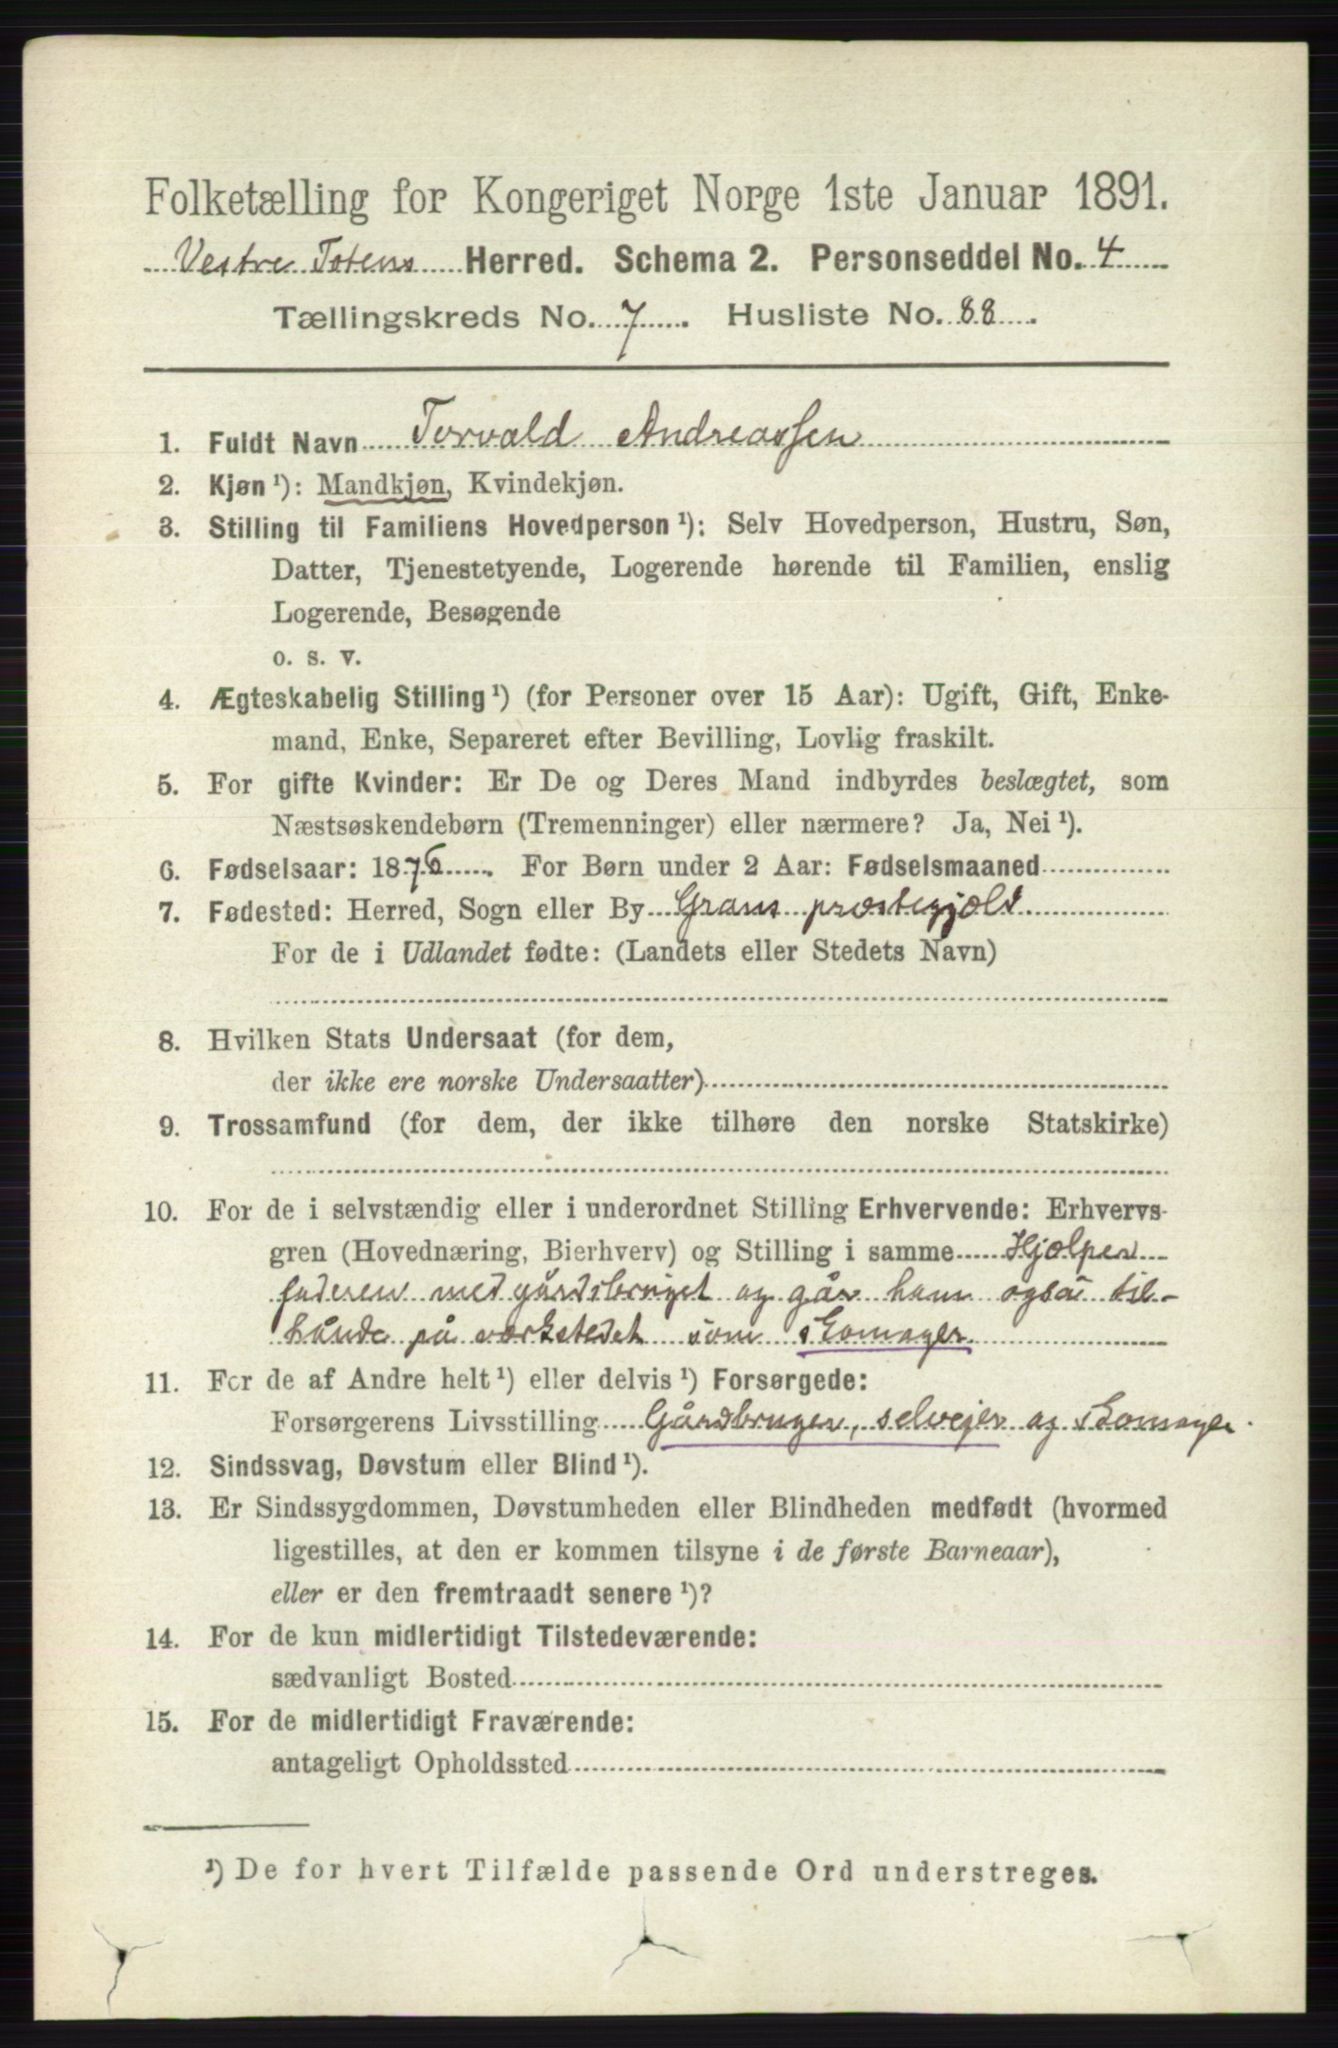 Folketælling for Kongeriget Norge 1ste Januar 1891.
Vestre Totens Herred. Schema 2. Personseddel No. 4
Tællingskreds No. 7. Husliste No. 88.
1. Fuldt Navn Torvald Andreassen
2. Kjøn ¹): Mandkjøn, Kvindekjøn.
3. Stilling til Familiens Hovedperson ¹): Selv Hovedperson, Hustru, Søn,
Datter, Tjenestetyende, Logerende hørende til Familien, enslig
Logerende, Besøgende
o. s. v.
4. Ægteskabelig Stilling ¹) (for Personer over 15 Aar): Ugift, Gift, Enke-
mand, Enke, Separeret efter Bevilling, Lovlig fraskilt.
5. For gifte Kvinder: Er De og Deres Mand indbyrdes beslægtet, som
Næstsøskendebørn (Tremenninger) eller nærmere? Ja, Nei ¹).
6. Fødselsaar: 1876. For Børn under 2 Aar: Fødselsmaaned
7. Fødested: Herred, Sogn eller By Grans præstegjæld
For de i Udlandet fødte: (Landets eller Stedets Navn)
8. Hvilken Stats Undersaat (for dem,
der ikke ere norske Undersaatter)
9. Trossamfund (for dem, der ikke tilhøre den norske Statskirke)
10. For de i selvstændig eller i underordnet Stilling Erhvervende: Erhvervs-
gren (Hovednæring, Bierhverv) og Stilling i samme Hjælper
faderen med gårdsbruget og går ham også til-
hånde på værkstedet som skomager
11. For de af Andre helt ¹) eller delvis ¹) Forsørgede:
Forsørgerens Livsstilling Gårdbruger, selvejer og skomager.
12. Sindssvag, Døvstum eller Blind ¹).
13. Er Sindssygdommen, Døvstumheden eller Blindheden medfødt (hvormed
ligestilles, at den er kommen tilsyne i de første Barneaar),
eller er den fremtraadt senere ¹)?
14. For de kun midlertidigt Tilstedeværende:
sædvanligt Bosted
15. For de midlertidigt Fraværende:
antageligt Opholdssted
¹) De for hvert Tilfælde passende Ord understreges.